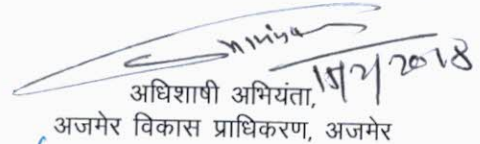 15/2/2018
अधिशाषी अभियंता,
अजमेर विकास प्राधिकरण, अजमेर